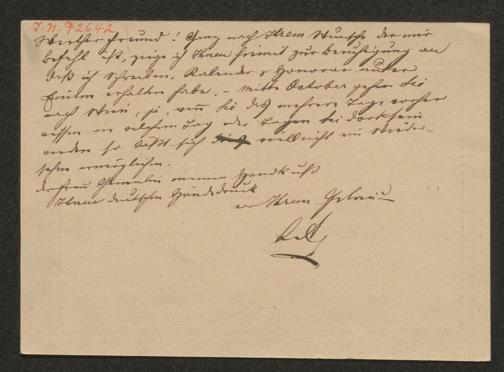 I.N. 72642
Werther Freund! Ganz nach Ihrem Wunsche der mir
Befehl ist, zeige ich Ihnen hiemit zur Beruhigung an
daß ich Schreiben, Kalender & Honorar unter
Einem erhalten habe. – Mitte October gehen Sie
nach Wien, ja, wenn Sie das mehrere Tage vorher
wissen an welchem Tag oder Tagen Sie dort sein
werden so läßt sich vielleicht ein Wieder-
sehn ermöglichen.
der Frau Gemalin meinen Handkuß
Ihnen deutschen Händedruck
Ihrem Getreuen